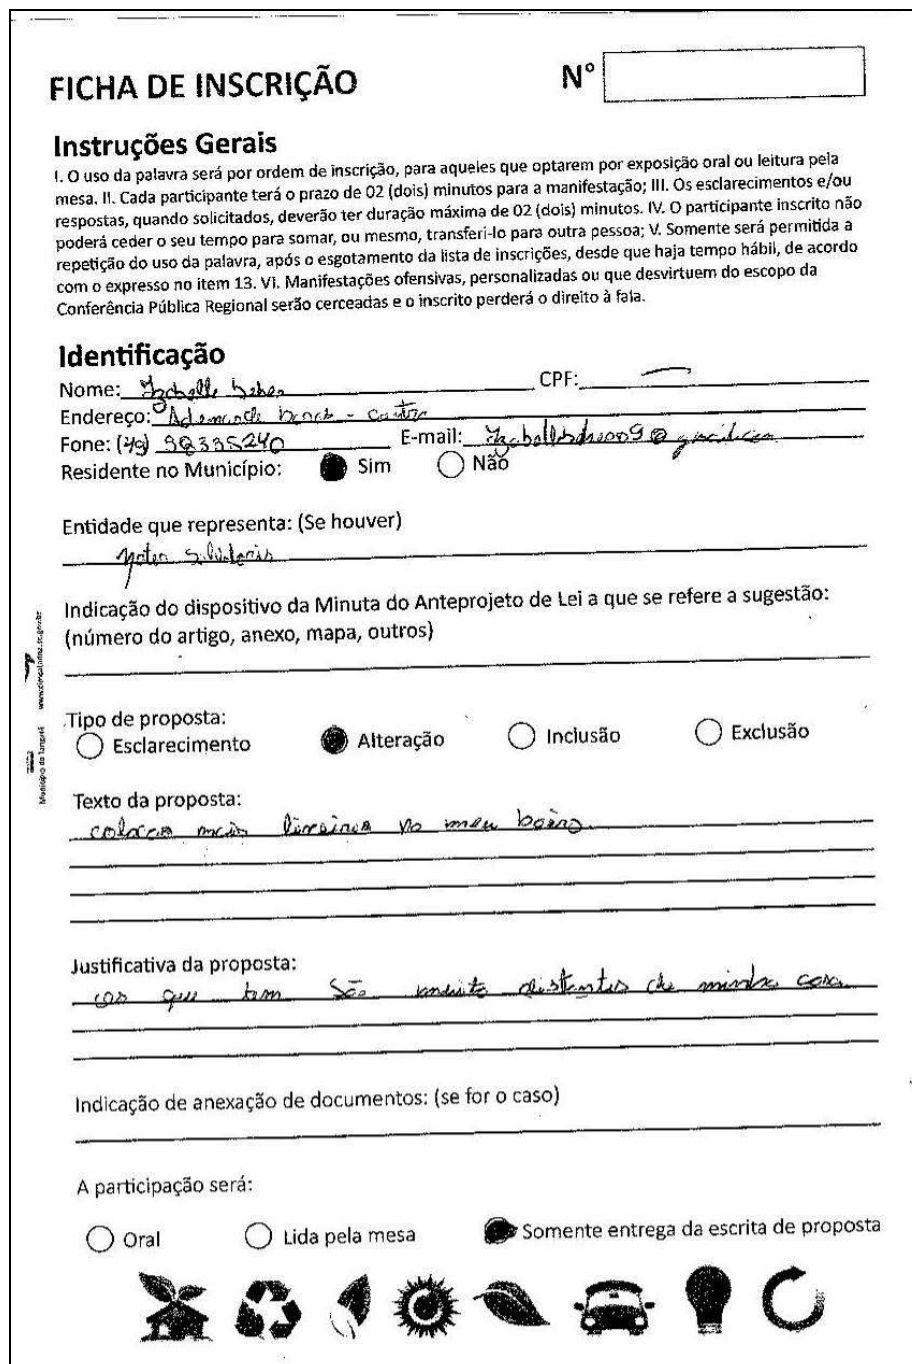 FICHA DE INSCRIÇÃO
Nº
Instruções Gerais
I. O uso da palavra será por ordem de inscrição, para aqueles que optarem por exposição oral ou leitura pela
mesa. II. Cada participante terá o prazo de 02 (dois) minutos para a manifestação; III. Os esclarecimentos e/ou
respostas, quando solicitados, deverão ter duração máxima de 02 (dois) minutos. IV. O participante inscrito não
poderá ceder o seu tempo para somar, ou mesmo, transferi-lo para outra pessoa; V. Somente será permitida a
repetição do uso da palavra, após o esgotamento da lista de inscrições, desde que haja tempo hábil, de acordo
com o expresso no item 13. VI. Manifestações ofensivas, personalizadas ou que desvirtuem do escopo da
Conferência Pública Regional serão cerceadas e o inscrito perderá o direito à fala.
Identificação
Nome: CPF:
Endereço:
Fone: (49) 98335240 E-mail:
Residente no Município: Sim Não
Entidade que representa: (Se houver)
Indicação do dispositivo da Minuta do Anteprojeto de Lei a que se refere a sugestão:
(número do artigo, anexo, mapa, outros)
Tipo de proposta:
Esclarecimento Alteração Inclusão Exclusão
Texto da proposta:
colocar mais lixeiras no meu bairro
Justificativa da proposta:
as que tem são muito distantes de minha casa
Indicação de anexação de documentos: (se for o caso)
A participação será:
Oral Lida pela mesa Somente entrega da escrita de proposta
Município de Tangará